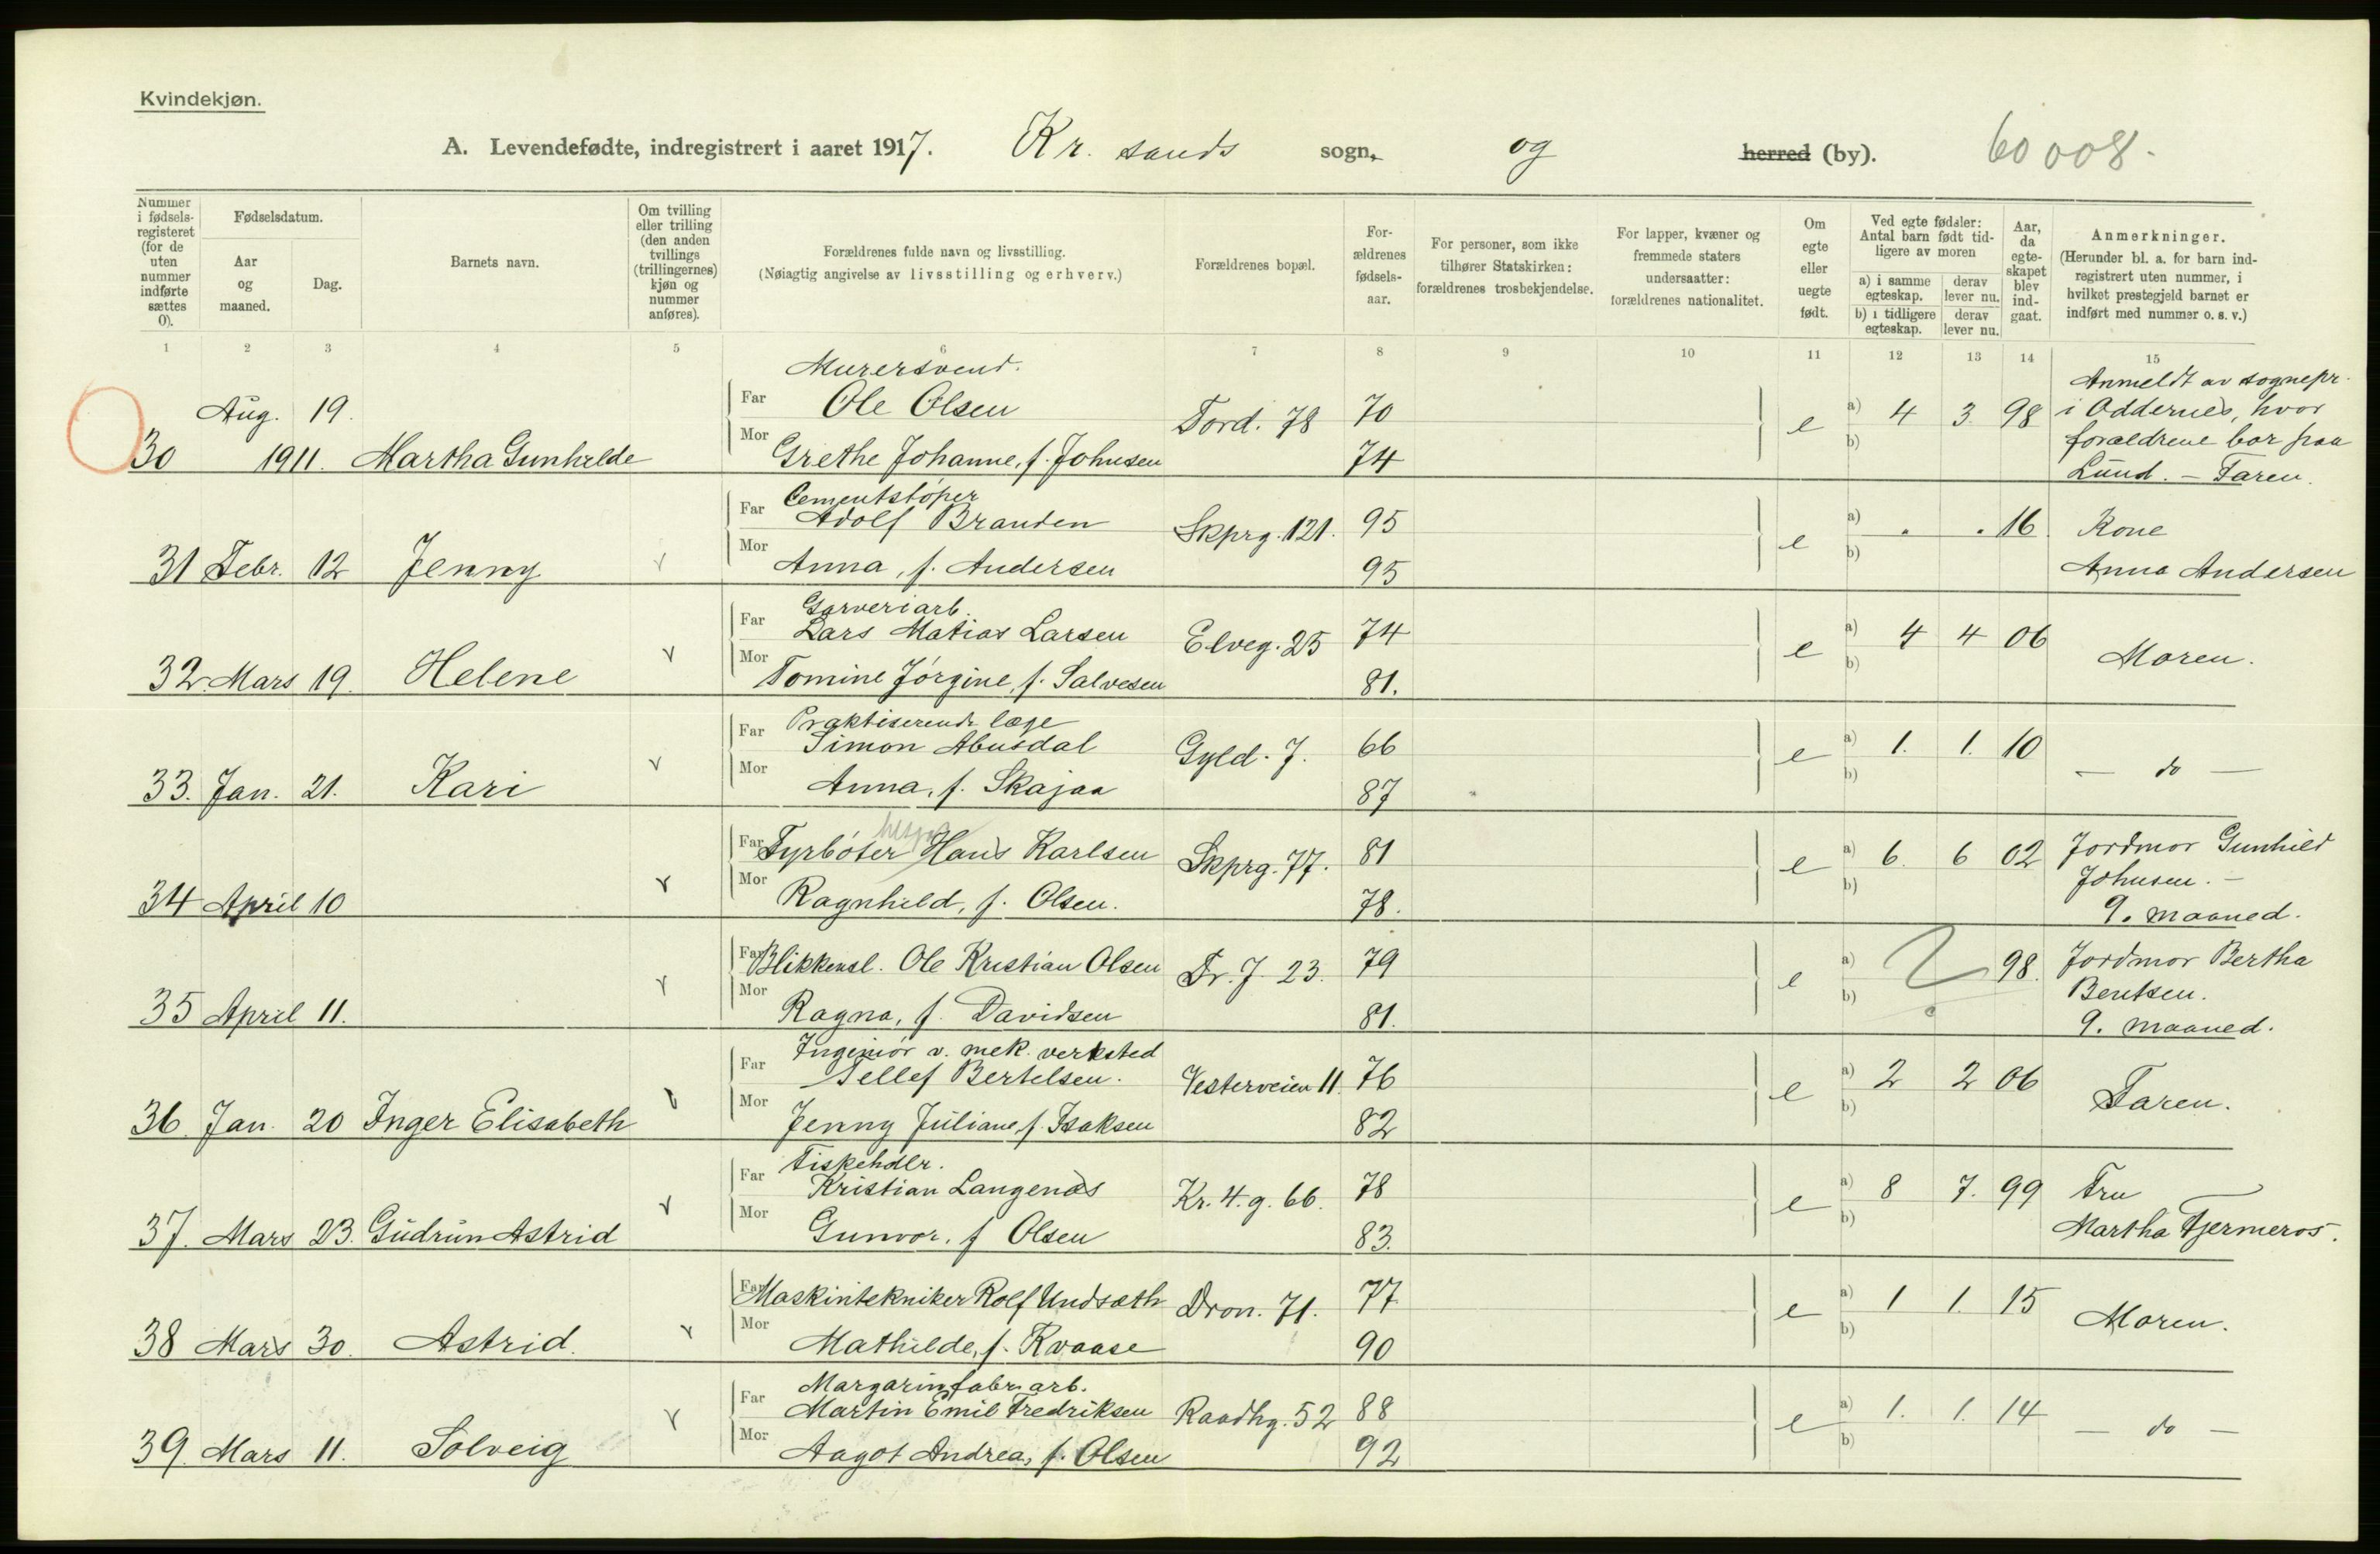 Kvindekjøn.
A. Levendefødte, indregistrert i aaret 1917. Kr. sands sogn, og herred (by). 60008.
Nummer i fødsels-registeret (for de uten nummer indførte sættes 0).
Fødselsdatum.
Aar og maaned.
Dag.
Barnets navn.
Om tvilling eller trilling (den anden tvillings (trillingernes) kjøn og nummer anføres).
Forældrenes fulde navn og livsstilling.
(Nøiagtig angivelse av livsstilling og erhverv.)
Forældrenes bopæl.
For-ældrenes fødsels-aar.
For personer, som ikke tilhører Statskirken: forældrenes trosbekjendelse.
For lapper, kvæner og fremmede staters undersaatter: forældrenes nationalitet.
Om egte eller uegte født.
Ved egte fødsler: Antal barn født tid-ligere av moren
a) i samme egteskap. derav lever nu.
b) i tidligere egteskap. derav lever nu.
Aar, da egte-skapet blev ind-gaat.
Anmerkninger.
(Herunder bl. a. for barn ind-registrert uten nummer, i hvilket prestegjeld barnet er indført med nummer o. s. v.)
1 2 3 4 5 6 7 8 9 10 11 12 13 14 15
Murersvend. Anmeldt av sognepr.
Aug. 19. Far Ole Olsen Tord. 78 70 e a) 4 3 98 i Oddernes, hvor
30 1911. Martha Gunhilde Mor Grethe Johanne, f. Johnsen 74 b) forældrene bor paa
Lund. – Faren.
Cementstøper
Far Adolf Branden Skprg. 121. 95 e a) . . 16 Kone
31 Febr. 12 Jenny v Mor Anna, f. Andersen 95 b) Anna Andersen
Garveriarb.
Far Lars Matias Larsen Elveg. 25 74 e a) 4 4 06
32. Mars 19. Helene v Mor Tomine Jörgine, f. Salvesen 81. b) Moren.
Praktiserende læge
Far Simon Abusdal Gyld. 7. 66 e a) 1. 1. 10
33. Jan. 21. Kari v Mor Anna, f. Skajaa 87 b) — do —
Far Fyrböter Hans Karlsen Skprg. 77. 81 e a) 6. 6 02 Jordmor Gunhild
34 April 10 v Mor Ragnhild, f. Olsen. 78. b) Johnsen. –
9. maaned.
Far Blikkensl. Ole Kristian Olsen Dr. J. 23. 79 e a) 98. Jordmor Bertha
35 April 11. v Mor Ragna, f. Davidsen 81. b) Bentsen.
9. maaned.
Ingeniör v. mek. verksted
Far Tellef Bertelsen. Vesterveien 11. 76 e a) 2 2 06
36. Jan. 20 Inger Elisabeth v Mor Jenny Juliane, f. Isaksen 82 b) Faren.
Fiskehdlr.
Far Kristian Langenæs Kr. 4. g. 66. 78 e a) 8 7. 99 Fru
37. Mars 23. Gudrun Astrid v Mor Gunvor, f. Olsen 83. b) Martha Fjermeros.
Far Maskintekniker Rolf Undsæth Dron. 71. 77 e a) 1 1. 15
38 Mars 30. Astrid. v Mor Mathilde, f. Kvaase 90 b) Moren.
Margarinfabr. arb.
Far Martin Emil Fredriksen Raadhg. 52 88 e a) 1. 1. 14
39. Mars 11. Solveig v Mor Aagot Andrea, f. Olsen 92 b) — do —